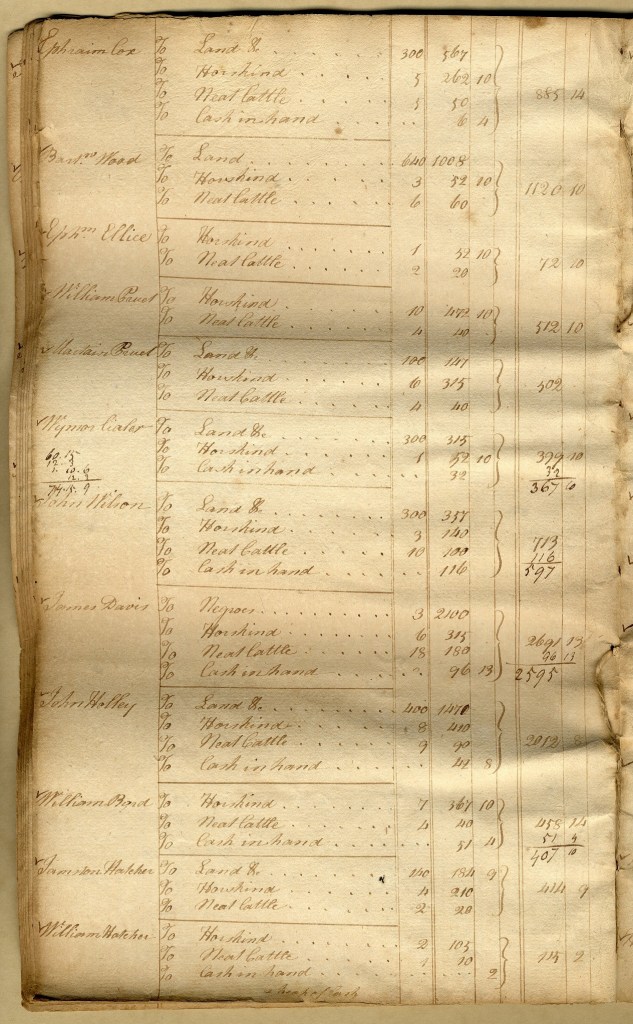 Ephraim Cox % Land &. . . . . . . 300 567
% Horskind . . . . . 5 262 10
% Neat Cattle . . . . . 5 50 885 14
% Cash in hand . . . . . . 6 4
Bart.ⁿ Wood % Land . . . . . . . . 640 1008
% Horskind . . . . . 3 52 10
% Neat Cattle . . . . . 6 60 1120 10
Eph.ᵐ Ellice % Horskind . . . . . . 1 52 10
% Neat Cattle . . . . . . 2 20 72 10
William % Horskind . . . . . . 10 472 10
% Neat Cattle . . . . . . 4 40 512 10
Martain % Land &. . . . . . . 100 147
% Horskind . . . . . 6 315 502
% Neat Cattle . . . . . 4 40
% Land &c. . . . . . . 300 315
% Horskind . . . . . . 1 52 10 399 10
% Cash in hand . . . . . . 32 32
367 10
74. 15. 9
John Wilson % Land &. . . . . . . 300 357
% Horskind . . . . . . 3 140
% Neat Cattle . . . . . 10 100 713
% Cash in hand . . . . . . 116 116
597
James Davis % Negroes . . . . . . 3 2100
% Horskind . . . . . . 6 315
% Neat Cattle . . . . . 18 180 2691 13
% Cash in hand . . . . . . 96 13 96 13
2595
John Holley % Land &. . . . . . . 400 1470
% Horskind . . . . . . 8 410
% Neat Cattle . . . . . . 9 90 2012 8
% Cash in hand . . . . . . 42 8
William % Horskind . . . . . . 7 367 10
% Neat Cattle . . . . . . 4 40 458 14
% Cash in hand . . . . . . 51 4 51 4
407 10
Jamston Hatcher % Land &. . . . . . . 140 184 9
% Horskind . . . . . . 4 210 414 9
% Neat Cattle . . . . . 2 20
William Hatcher % Horskind . . . . . . 2 105
% Neat Cattle . . . . . 1 10 115 2
% Cash in hand . . . . . . 2